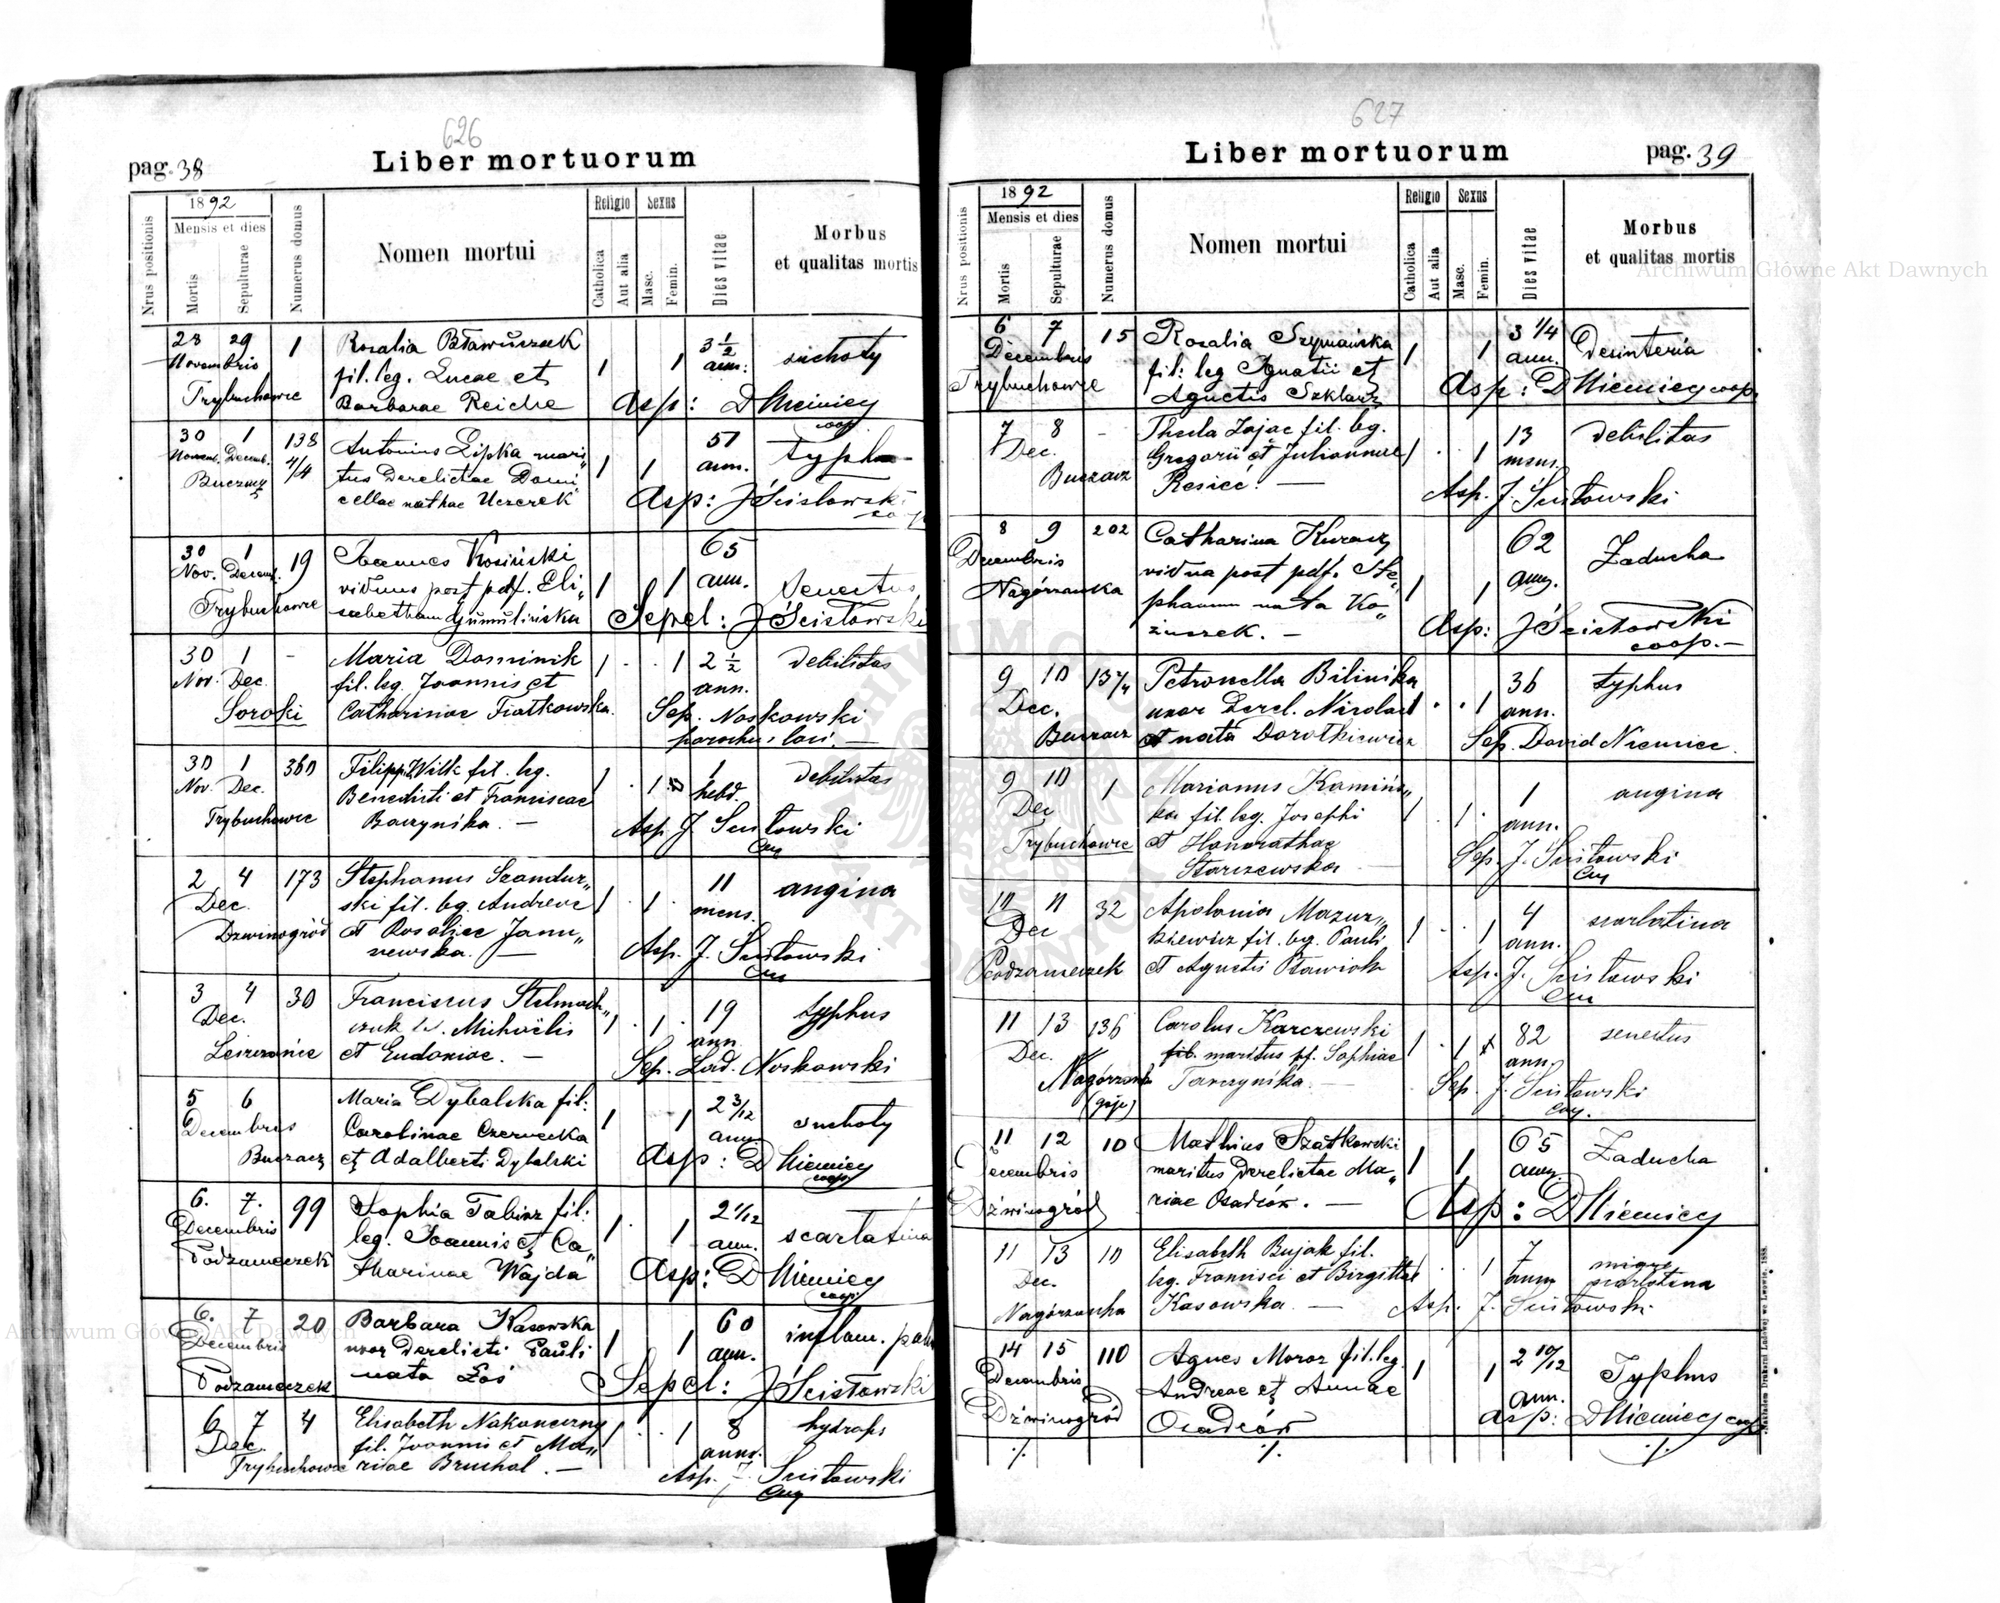 626
pag. 38
Liber mortuorum
Nrus positionis
1892
Mensis et dies
Mortis
Sepulturae
Numerus domus
Nomen mortui
Religio
Catholica
Aut alia
Sexus
Masc.
Femin.
Dies vitae
Morbus
et qualitas mortis
28 29 1 Rosalia 1 1 3 1/2 suchoty
Novembris fil. leg. Lucae et ann:
Trybuchowce Barbarae Reiche Asp: D Niemiec
coop
30 1 138 Antonius Lipka mari„ 1 1 51
Novemb. Decemb. 4/4 tus Derelictae Domi„ ann.
Buczacz cellae nathae Uczerek Asp: J Scisłowski
30 1 19 Joannes Kosiński 1 1 65
Nov. Decemb. viduus post pdf. Eli„ ann. Senectus
Trybuchowce sabetham Sepel: J Scisłowski
30 1 - Maria Dominik 1 . . 1 2 1/2 debilitas
Nov. Dec. fil. leg. Joannis et ann.
Soroki Catharinae Fiatkowska. Sep. Noskowski
parochus loci. —
30 1 360 Filipp Wilk fil. leg. 1 . 1 1 debilitas
Nov. Dec. Benedicti et Franciscae hebd.
Trybuchowce Baczynska. — Asp. J. Scisłowski
2 4 173 Stephanus Szandur„ 1 . 1 . 11 angina
Dec. ski fil. leg. Andreae mens.
Dzwinogród et Rosaliee Janu„ Asp. J. Scisłowski
newska. —
3 4 30 Franciscus Stelmach„ 1 . 1 . 19 typhus
Dec. czuk Michaëlis ann
et Eudoxiae. — Sep. Lad. Noskowski
5 6 Maria Dybalska fil: 1 1 2 3/12 suchoty
Decembris Carolinae Czerwecka ann.
Buczacz et Adalberti Dybalski Asp: D Niemiec
coop
6. 7. 99 Sophia Tabisz fil: 1 1 2 1/12 scarlatina
Decembris leg. Joannis et Ca„ ann.
Podzameczek tharinae Wajda Asp: D Niemiec
coop
6. 7 20 Barbara Kasowska 1 1 60 inflam.
Decembris uxor Derelicti Pauli ann.
Podzameczek nata Łoś Sepel: J Scisłowski
6 7 4 Elisabeth Nakoneczny 1 . . 1 8 hydrops
Dec. fil. Joannis et Ma„ anno.
Trybuchowce riae Bruchal. — Asp. J. Scisłowski
627
Liber mortuorum
pag. 39
Nrus positionis
1892
Mensis et dies
Mortis
Sepulturae
Numerus domus
Nomen mortui
Religio
Catholica
Aut alia
Sexus
Masc.
Femin.
Dies vitae
Morbus
et qualitas mortis
6 7 15 Rosalia Szymańska 1 1 3 1/4 Desinteria
Decembris fil: leg Ignatii et ann.
Trybuchowce Agnetis Szklarz Asp: D Niemiec coop.
7 8 - Thecla Zając fil. leg. 1 . . 1 13 debilitas
Dec. Gregorii et Juliannae mens.
Buczacz Asp. J. Scisłowski
8 9 202 Catharina Kuracz 1 1 62 Zaducha
Decembris vidua post pdf. Ste„ ann.
Nagórzanka phanum nata Ko„ Asp: J Scisłowski
żuszek. — coop. —
9 10 Petronella Bilinska 1 . . 1 36 typhus
Dec. uxor Derel. Nicolai ann.
Buczacz et nata Dorotkiewicz Sep. David Niemiec.
9 10 1 Marianus Kamińs„ 1 . 1 . 1 angina
Dec ka fil. leg. Josephi ann.
Trybuchowce et Honorathae Sep. J. Scisłowski
Starczewska —
10 11 32 Apolonia Mazur„ 1 . . 1 4 scarlatina
Dec kiewicz fil. leg. Pauli ann.
Podzameczek et Agnetis Asp. J. Scisłowski
11 13 136 Carolus Karczewski 1 . 1 82 senectus
Dec. fil. maritus pf. Sophiae ann.
Nagórzanka Tarczynska. — Sep. J. Scisłowski
(gaje)
11 12 10 Mathias Szatkowski 1 1 65 Zaducha
Decembris maritus Derelictae Ma„ ann.
Dźwinogród riae Osadców. — Asp: D Niemiec
11 13 10 Elisabeth Bujak fil. . . 1 7
Dec. leg. Francisci et Birgittae ann scarlatina
Nagórzanka Kasowska. — Asp. J. Scisłowski
14 15 110 Agnes Moroz fil. leg. 1 1 2 10/12 Typhus
Decembris Andreae et Annae ann.
Dźwinogród Osadców Asp: D Niemiec coop
./. ./. ./.
Nakładem Drukarni Ludowej we Lwowie, 1888.
Archiwum Główne Akt Dawnych
Archiwum Główne Akt Dawnych